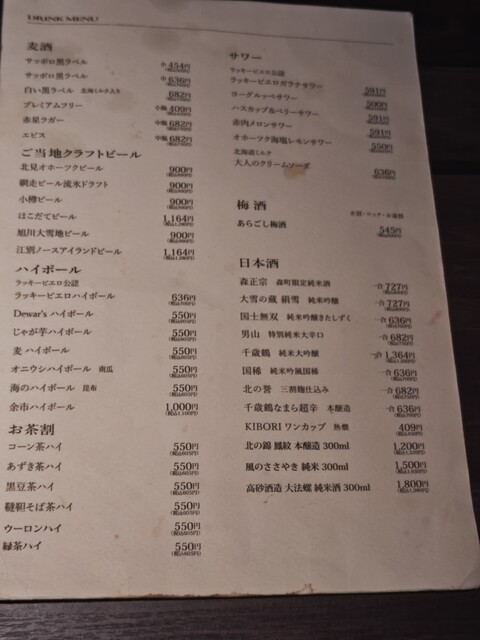 DRINK MENU
麦酒
サッポロ黒ラベル 小 454円
サッポロ黒ラベル 中 636円
白い黒ラベル 北海ミルク入り 682円
プレミアムフリー 小瓶 409円
赤星ラガー 中瓶 682円
エビス 中瓶 682円
ご当地クラフトビール
北見オホーツクビール 900円
網走ビール流氷ドラフト 900円
小樽ビール 900円
はこだてビール 1,164円
旭川大雪地ビール 900円
江別ノースアイランドビール 1,164円
ハイボール
ラッキーピエロ公認
ラッキーピエロハイボール 636円
Dewar's ハイボール 550円
じゃが芋ハイボール 550円
麦 ハイボール 550円
オニウシハイボール 南瓜 550円
海のハイボール 昆布 550円
余市ハイボール 1,000円
(税込1,100円)
お茶割
コーン茶ハイ 550円
(税込605円)
あずき茶ハイ 550円
(税込605円)
黒豆茶ハイ 550円
(税込605円)
韃靼そば茶ハイ 550円
(税込605円)
ウーロンハイ 550円
(税込605円)
緑茶ハイ 550円
(税込605円)
サワー
ラッキーピエロ公認
ラッキーピエロガラナサワー 591円
ヨーグルッペサワー 500円
ハスカップ&ベリーサワー 591円
赤肉メロンサワー 591円
オホーツク海塩レモンサワー 550円
北海道ミルク
大人のクリームソーダ 636円
梅酒 水割・ロック・お湯割
あらごし梅酒 545円
日本酒
森正宗 森町限定純米酒 一合 727円
大雪の蔵 絹雪 純米吟醸 一合 727円
国士無双 純米吟醸きたしずく 一合 636円
男山 特別純米大辛口 一合 682円
千歳鶴 純米大吟醸 一合 1,364円
国稀 純米吟風国稀 一合 636円
北の誉 三割麹仕込み 一合 682円
千歳鶴なまら超辛 本醸造 一合 636円
KIBORI ワンカップ 熱燗 409円
北の錦 鳳紋 本醸造 300ml 1,200円
風のささやき 純米 300ml 1,500円
高砂酒造 大法螺 純米酒 300ml 1,800円